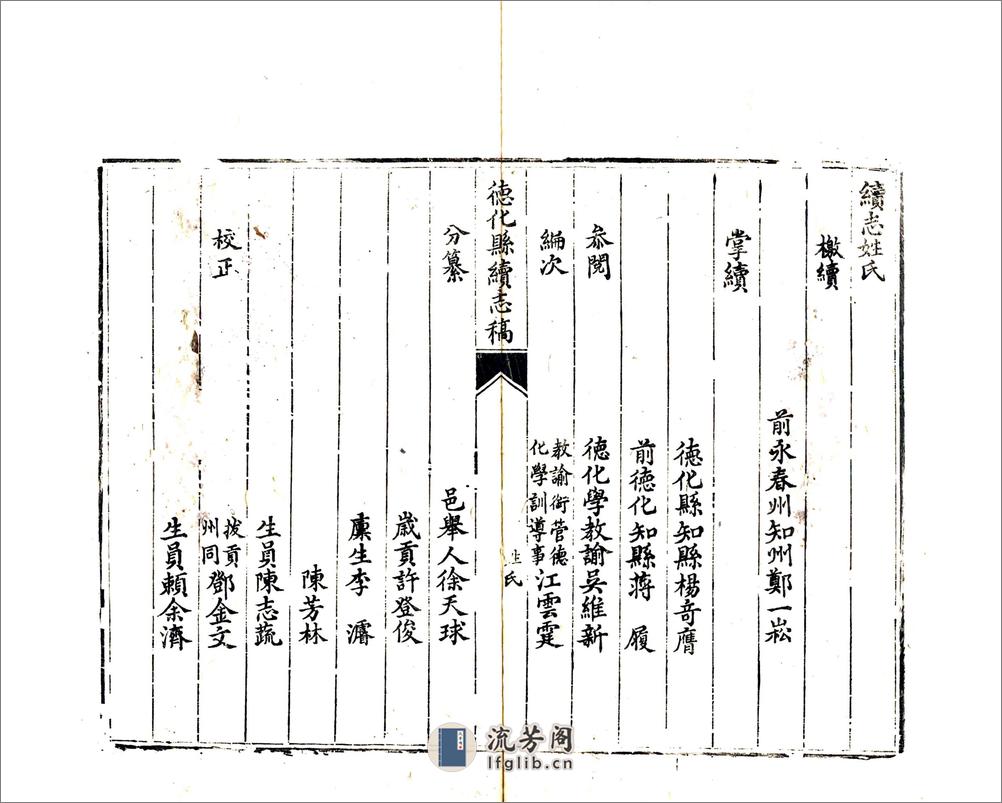 續志姓氏
檄續
前永春州知州鄭一崧
掌續
德化縣知縣楊奇膺
前德化知縣蔣　履
叅閱
德化學教諭吳維新
編次
教諭銜管德
化學訓導事
江雲霆
德化縣續志稿
姓氏
分纂
邑舉人徐天球
歲貢許登俊
廩生李　濬
陳芳林
生員陳志蔬
校正
拨貢
州同
鄧金文
生員賴余濟
流芳阁
lfglib.cn